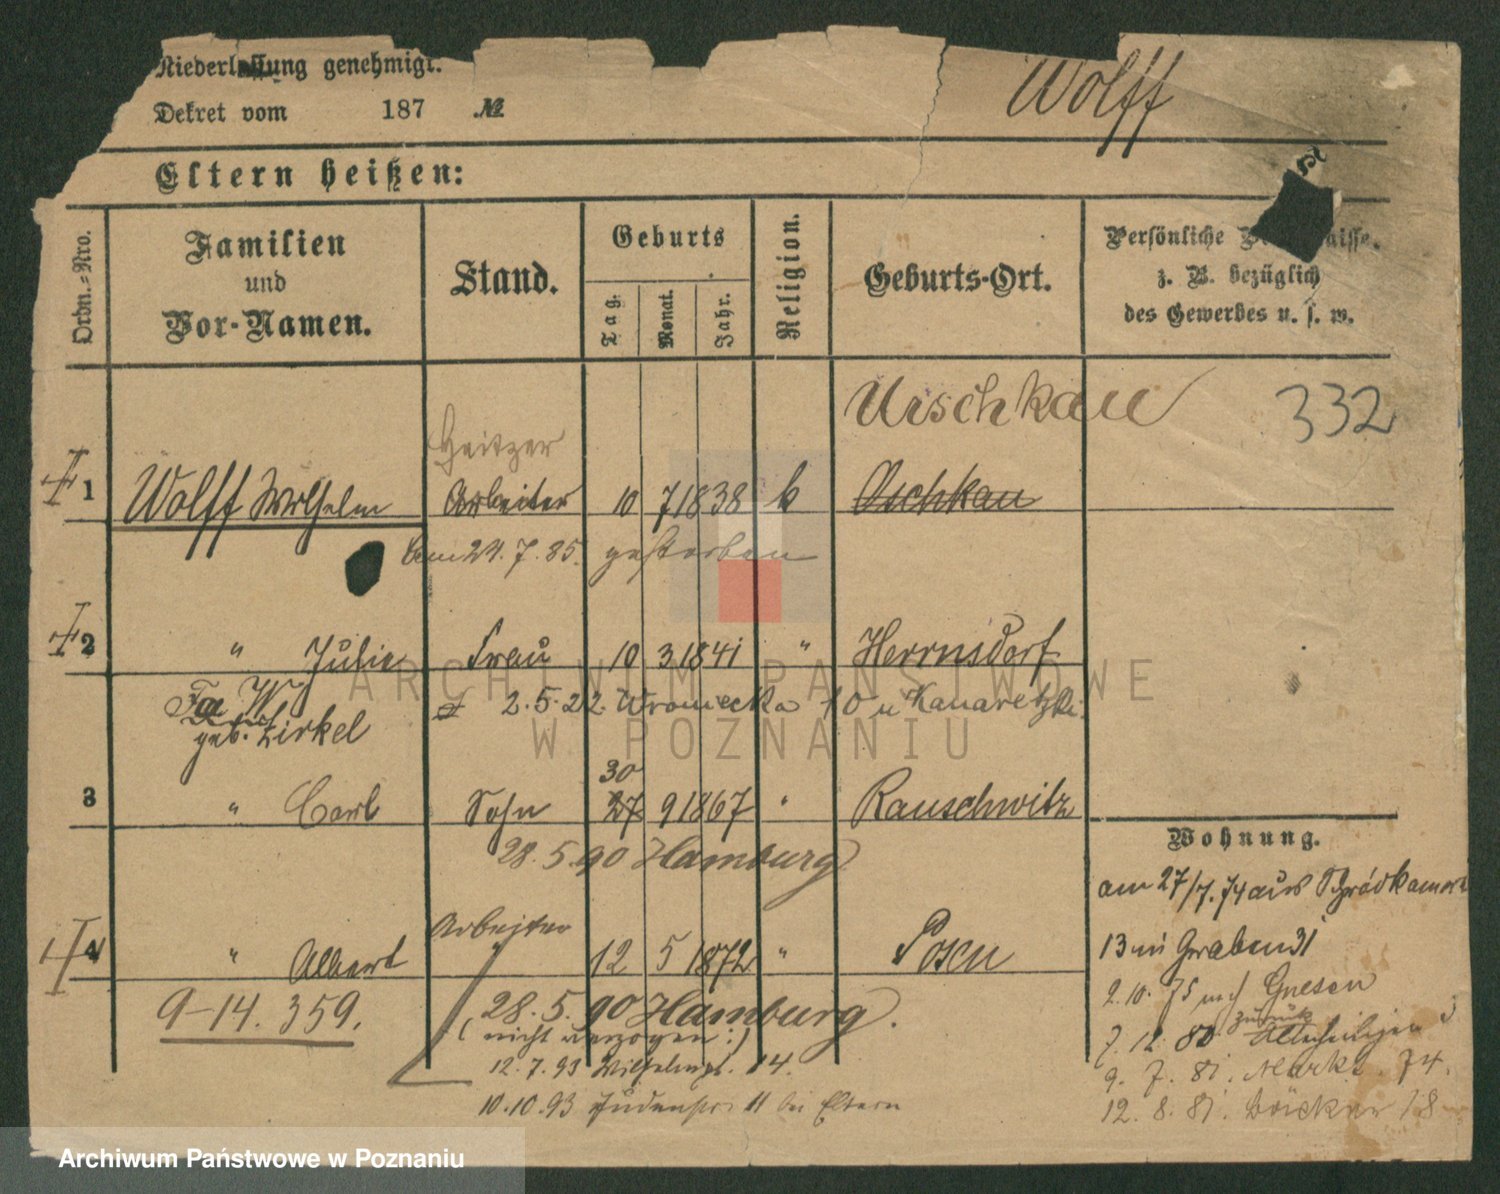 Niederlassung genehmigt.
Wolff
Dekret vom 187 №
Eltern heißen:
Ordn.-Nro.
Familien
und
Vor-Namen.
Stand.
Geburts
Tag.
Monat.
Jahr.
Religion.
Geburts-Ort.
Persönliche
z. B. bezüglich
des Gewerbes u. s. w.
Urschkau
332
Heitzer
1 Wolff Wilhelm Arbeiter 10 7 1838 k Oschkau
am 24. 7. 85. gestorben
2 " Julie Frau 10 3 1841 " Herrnsdorf
geb. Zirkel
2. 5. 22. Wroniecka 10 u Kanaretzki
30
3 " Carl Sohn 27 9 1867 " Rauschwitz
28. 5. 90 Hamburg
Wohnung.
am 27/7. 74 aus
Arbeiter
4 " Albert 12 5 1872 " Posen
13 Graben 31
9-14. 359.
28. 5. 90 Hamburg.
(nicht verzogen!)
12. 7. 93 Wilhelmpl. 14.
10. 10. 93 Judenstr. 11 bei Eltern
2. 10. 75 nach Gnesen
zurück
7. 12. 80 Allerheiligen 3
9. 7. 81. Markt. 74.
12. 8. 81. 18
ARCHIWUM PAŃSTWOWE
W POZNANIU
Archiwum Państwowe w Poznaniu